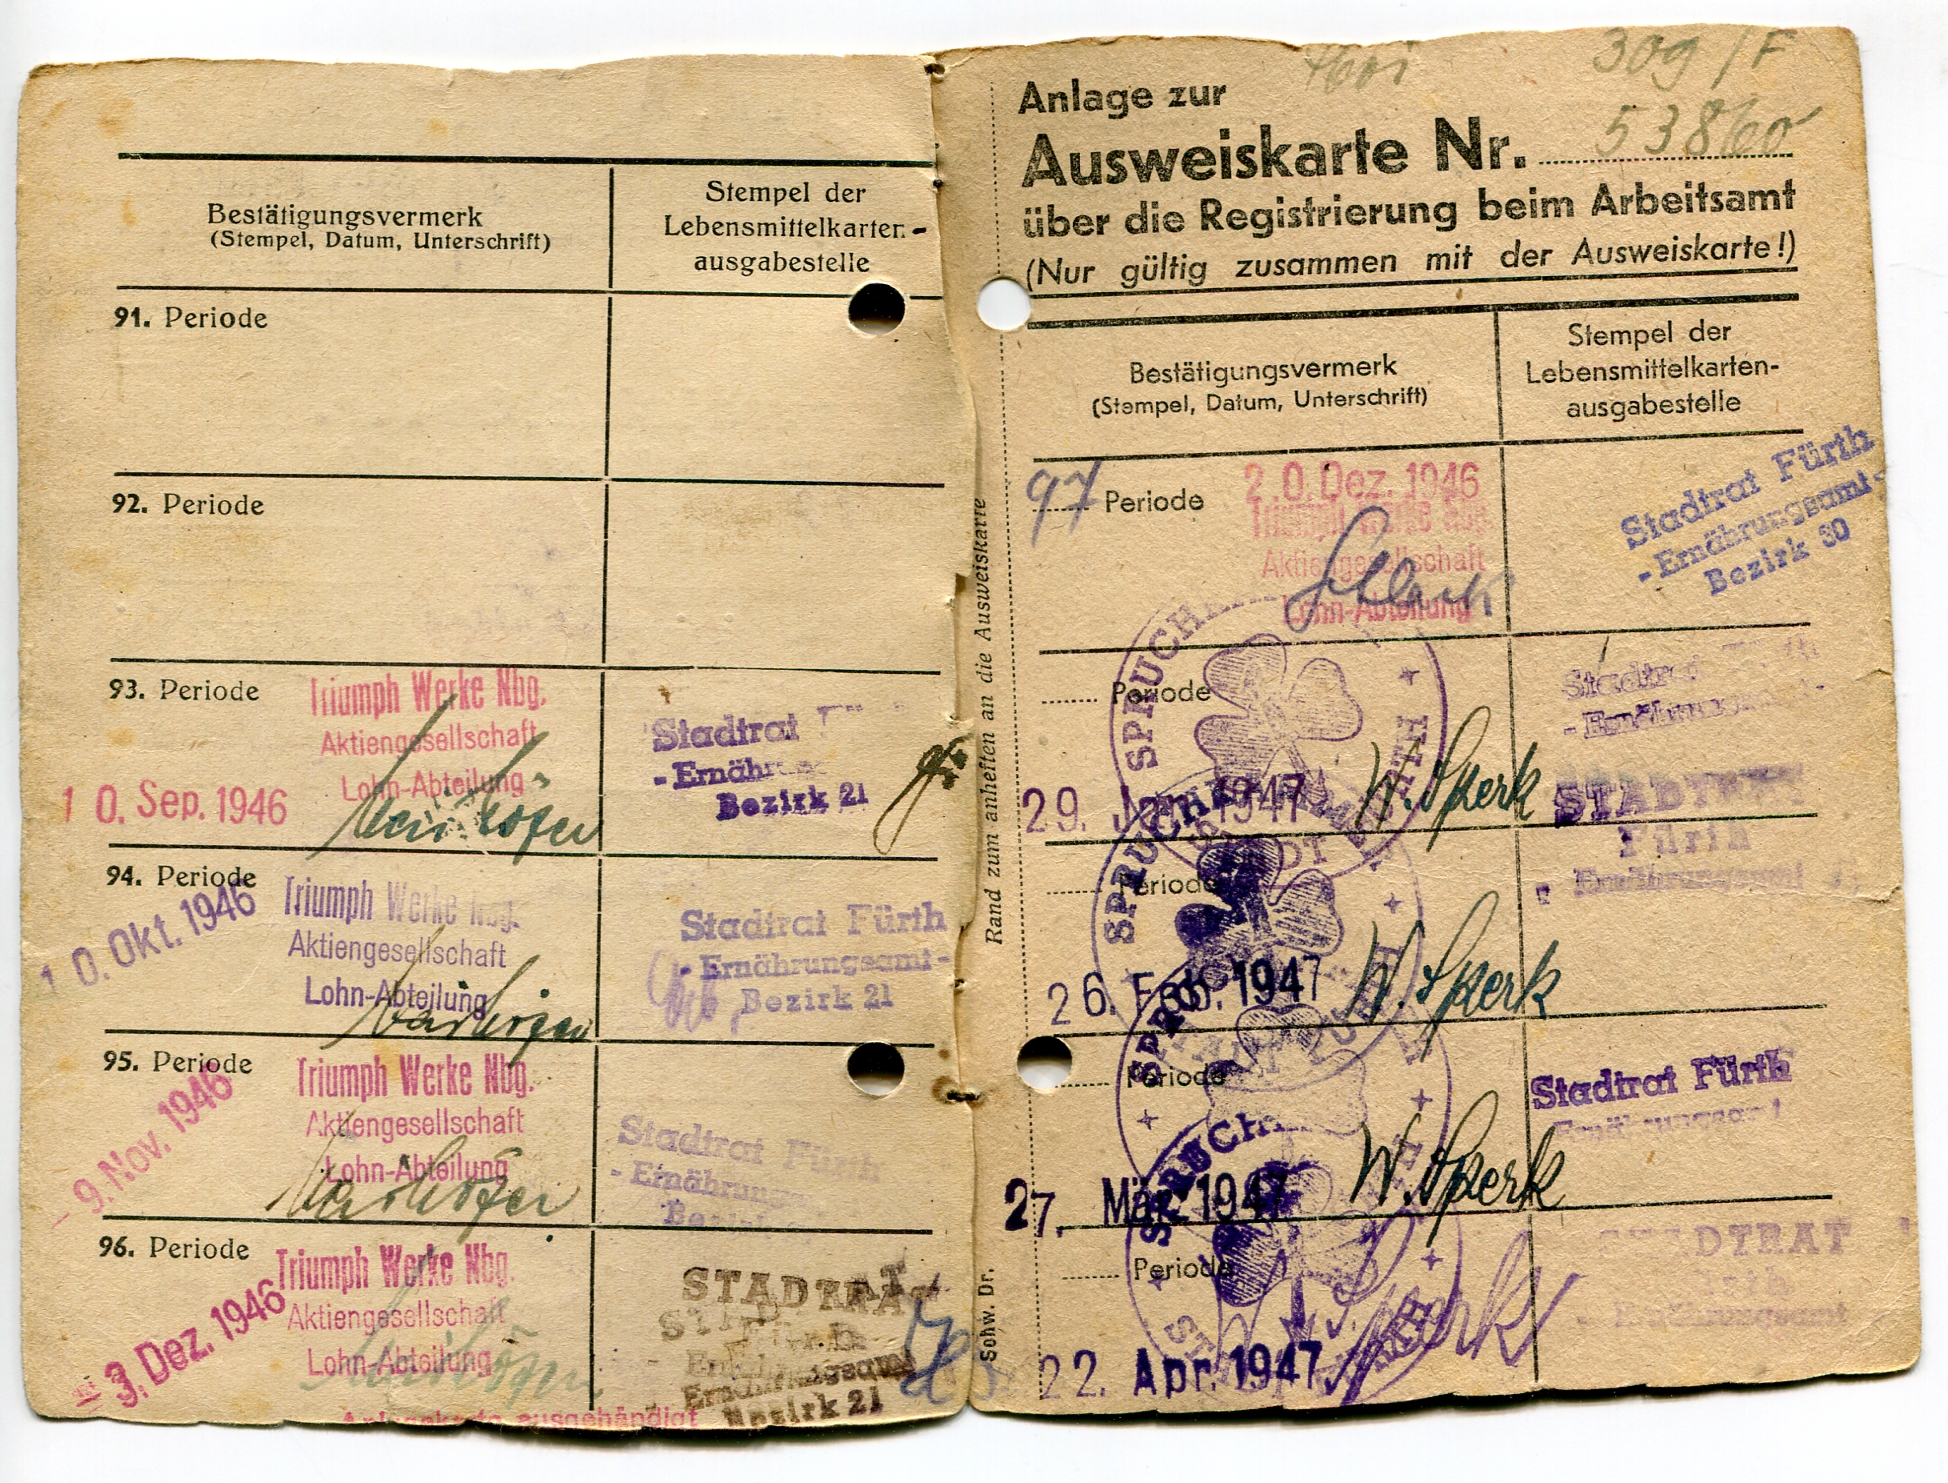 Bestätigungsvermerk
(Stempel, Datum, Unterschrift)
Stempel der
Lebensmittelkarten-
ausgabestelle
91. Periode
92. Periode
93. Periode
Triumph Werke Nbg.
Aktiengesellschaft
Lohn-Abteilung
10. Sep. 1946
Stadtrat
- Ernähr
Bezirk 21
94. Periode
10. Okt. 1946
Triumph Werke Nbg.
Aktiengesellschaft
Lohn-Abteilung
Stadtrat Fürth
- Ernährungsamt -
Bezirk 21
95. Periode
- 9. Nov. 1946
Triumph Werke Nbg.
Aktiengesellschaft
Lohn-Abteilung
Stadtrat Fürth
- Ernährungs
96. Periode
- 3. Dez. 1946
Triumph Werke Nbg.
Aktiengesellschaft
Lohn-Abteilung
STADTRAT
Fürth
Ernährungsamt
Bezirk 21
ausgehändigt
Rand zum anheften an die Ausweiskarte
Schw. Dr.
309/F
Anlage zur
Ausweiskarte Nr. 53860
über die Registrierung beim Arbeitsamt
(Nur gültig zusammen mit der Ausweiskarte!)
Bestätigungsvermerk
(Stempel, Datum, Unterschrift)
Stempel der
Lebensmittelkarten-
ausgabestelle
97 Periode
20. Dez. 1946
Triumph Werke Nbg.
Aktiengesellschaft
Lohn-Abteilung
Stadtrat Fürth
- Ernährungsamt -
Bezirk 30
Periode
SPRUCH
STADT
29. Jan. 1947
W. Sperk
Stadtrat
- Ernährungsamt -
STADTRAT
Fürth
Ernährungsamt
Periode
SPRUCH
26. Feb. 1947
W. Sperk
Periode
27. März 1947
W. Sperk
Stadtrat Fürth
Ernährungsamt
Periode
SPRUCH
22. Apr. 1947
W. Sperk
STADTRAT
Fürth
- Ernährungsamt